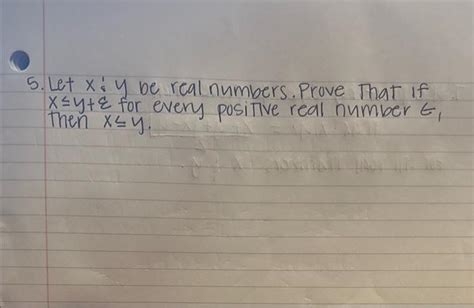 5. Let x & y be real numbers. Prove that if
x ≤ y + ε for every positive real number ε,
then x ≤ y.